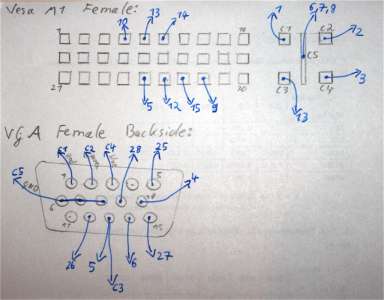 Vesa M1 Female:
10 13 14
1 10
21 30
5 12 15 9
1 6,7,8
C1 C2 2
C5
C3 C4 3
13
VGA Female Backside:
C1 C2 C4 28 25
C5 GND
1 5
6 10 4
11 15
26 5 C3 6 27